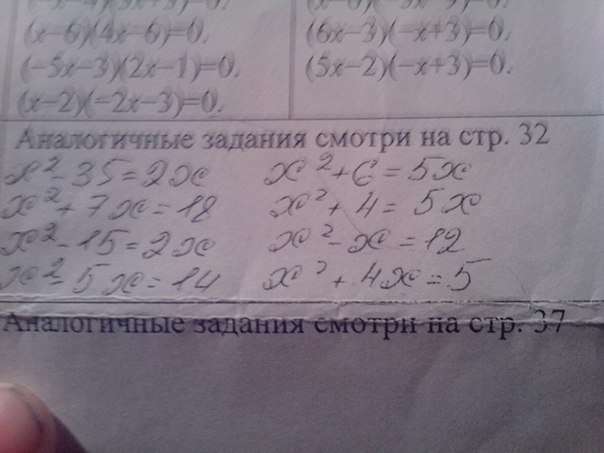 (x–6)(4x–6)=0. (6x–3)(–x+3)=0.
(–5x–3)(2x–1)=0. (5x–2)(–x+3)=0.
(x–2)(–2x–3)=0.
Аналогичные задания смотри на стр. 32
x²-35=2x x²+6=5x
x²+7x=18 x²+4=5x
x²-15=2x x²-x=12
x²-5x=14 x²+4x=5
Аналогичные задания смотри на стр. 37